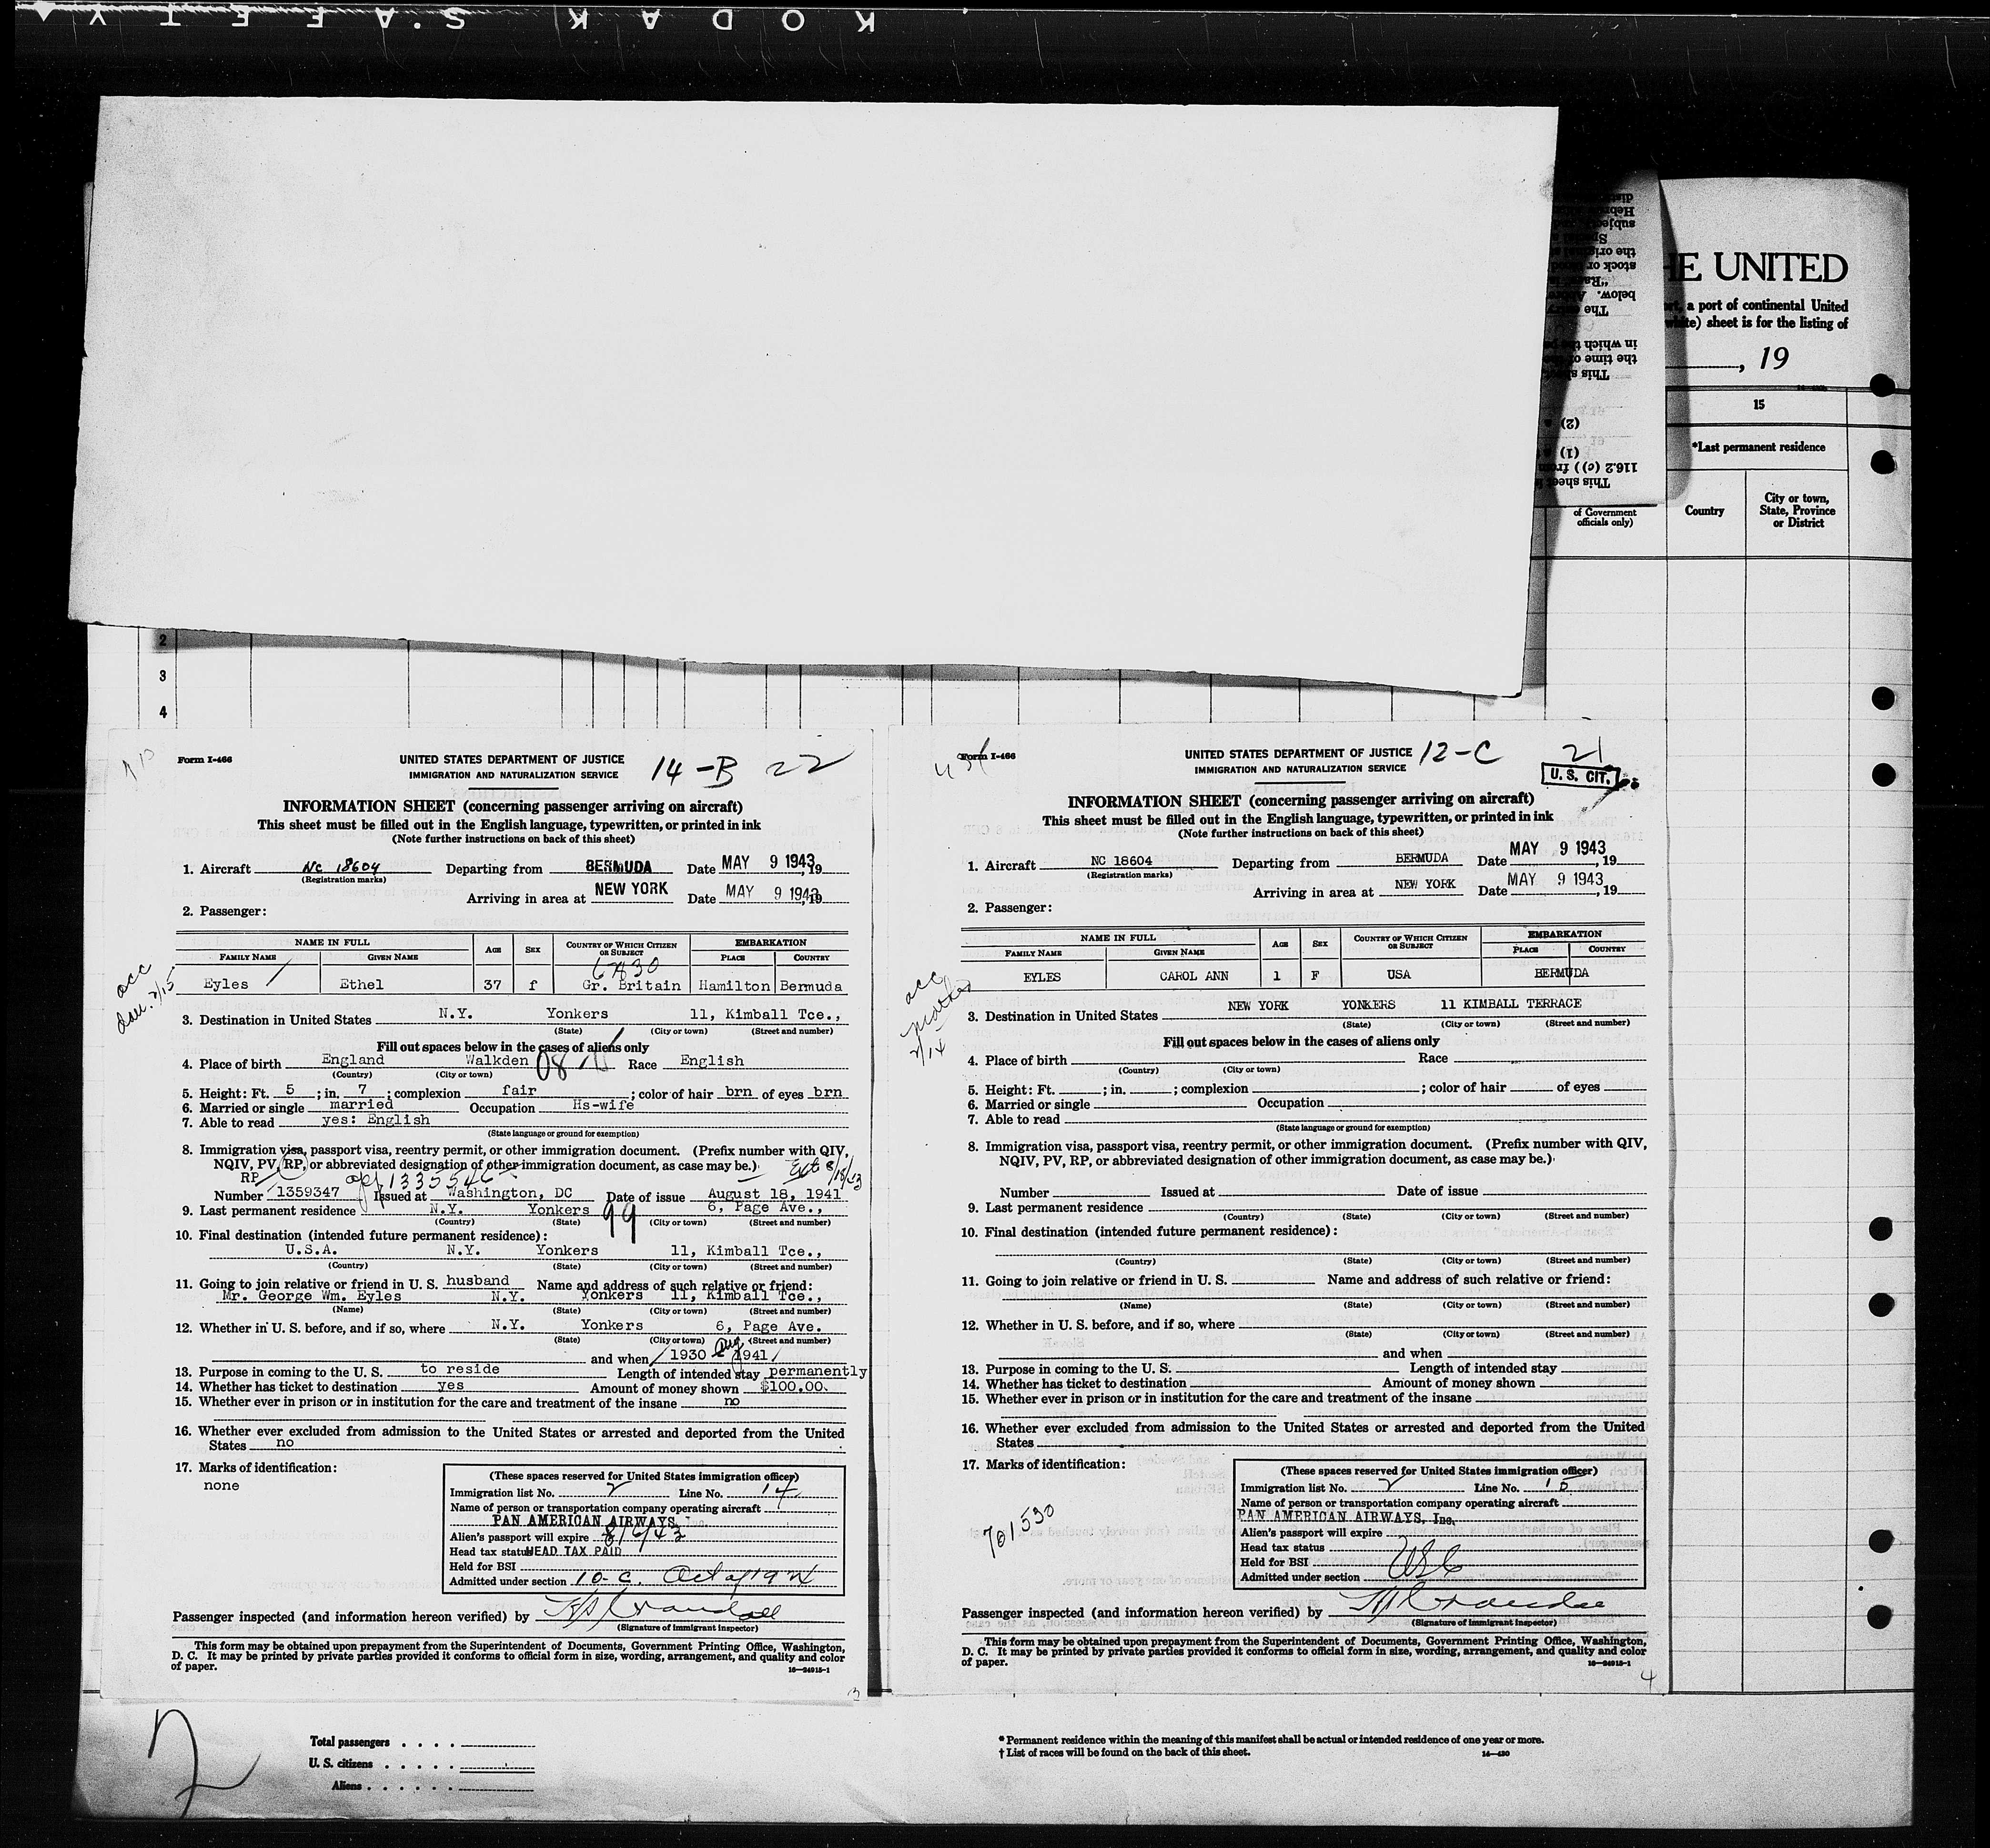 KODAK SAFETY
HE UNITED
a port of continental United
sheet is for the listing of
, 19
15
*Last permanent residence
of Government
officials only)
Country
City or town,
State, Province
or District
2
3
4
Form I-466
UNITED STATES DEPARTMENT OF JUSTICE
IMMIGRATION AND NATURALIZATION SERVICE
14-B 22
INFORMATION SHEET (concerning passenger arriving on aircraft)
This sheet must be filled out in the English language, typewritten, or printed in ink
(Note further instructions on back of this sheet)
1. Aircraft NC 18604 Departing from BERMUDA Date MAY 9 1943, 19
(Registration marks)
Arriving in area at NEW YORK Date MAY 9 1943, 19
2. Passenger:
NAME IN FULL AGE SEX COUNTRY OF WHICH CITIZEN OR SUBJECT EMBARKATION
FAMILY NAME GIVEN NAME PLACE COUNTRY
Eyles Ethel 37 f Gr. Britain Hamilton Bermuda
3. Destination in United States N.Y. Yonkers 11, Kimball Tce.,
(State) (City or town) (Street and number)
Fill out spaces below in the cases of aliens only
4. Place of birth England Walkden Race English
(Country) (City or town)
5. Height: Ft. 5 ; in. 7 ; complexion fair ; color of hair brn of eyes brn
6. Married or single married Occupation Hs-wife
7. Able to read yes: English
(State language or ground for exemption)
8. Immigration visa, passport visa, reentry permit, or other immigration document. (Prefix number with QIV,
NQIV, PV, RP, or abbreviated designation of other immigration document, as case may be.)
RP
Number 1359347 Issued at Washington, DC Date of issue August 18, 1941
9. Last permanent residence N.Y. Yonkers 99 6, Page Ave.,
(Country) (State) (City or town) (Street and number)
10. Final destination (intended future permanent residence):
U.S.A. N.Y. Yonkers 11, Kimball Tce.,
(Country) (State) (City or town) (Street and number)
11. Going to join relative or friend in U. S. husband Name and address of such relative or friend:
Mr. George Wm. Eyles N.Y. Yonkers 11, Kimball Tce.,
(Name) (State) (City or town) (Street and number)
12. Whether in U. S. before, and if so, where N.Y. Yonkers 6, Page Ave.
(State) (City or town) (Street and number)
and when 1930 - Aug 1941
13. Purpose in coming to the U. S. to reside Length of intended stay permanently
14. Whether has ticket to destination yes Amount of money shown $100.00.
15. Whether ever in prison or in institution for the care and treatment of the insane no
16. Whether ever excluded from admission to the United States or arrested and deported from the United
States no
17. Marks of identification:
none
(These spaces reserved for United States immigration officer)
Immigration list No. 2 Line No. 14
Name of person or transportation company operating aircraft
PAN AMERICAN AIRWAYS, Inc.
Alien's passport will expire 8/6/43
Head tax status HEAD TAX PAID
Held for BSI
Admitted under section 10-C. Act of 1924
Passenger inspected (and information hereon verified) by
(Signature of immigrant inspector)
This form may be obtained upon prepayment from the Superintendent of Documents, Government Printing Office, Washington,
D. C. It may be printed by private parties provided it conforms to official form in size, wording, arrangement, and quality and color
of paper.
16—24915-1
3
Form I-466
UNITED STATES DEPARTMENT OF JUSTICE
IMMIGRATION AND NATURALIZATION SERVICE
12-C 21
U. S. CIT.
INFORMATION SHEET (concerning passenger arriving on aircraft)
This sheet must be filled out in the English language, typewritten, or printed in ink
(Note further instructions on back of this sheet)
1. Aircraft NC 18604 Departing from BERMUDA Date MAY 9 1943, 19
(Registration marks)
Arriving in area at NEW YORK Date MAY 9 1943, 19
2. Passenger:
NAME IN FULL AGE SEX COUNTRY OF WHICH CITIZEN OR SUBJECT EMBARKATION
FAMILY NAME GIVEN NAME PLACE COUNTRY
EYLES CAROL ANN 1 F USA BERMUDA
3. Destination in United States NEW YORK YONKERS 11 KIMBALL TERRACE
(State) (City or town) (Street and number)
Fill out spaces below in the cases of aliens only
4. Place of birth Race
(Country) (City or town)
5. Height: Ft. ; in. ; complexion ; color of hair of eyes
6. Married or single Occupation
7. Able to read
(State language or ground for exemption)
8. Immigration visa, passport visa, reentry permit, or other immigration document. (Prefix number with QIV,
NQIV, PV, RP, or abbreviated designation of other immigration document, as case may be.)
Number Issued at Date of issue
9. Last permanent residence
(Country) (State) (City or town) (Street and number)
10. Final destination (intended future permanent residence):
(Country) (State) (City or town) (Street and number)
11. Going to join relative or friend in U. S. Name and address of such relative or friend:
(Name) (State) (City or town) (Street and number)
12. Whether in U. S. before, and if so, where
(State) (City or town) (Street and number)
and when
13. Purpose in coming to the U. S. Length of intended stay
14. Whether has ticket to destination Amount of money shown
15. Whether ever in prison or in institution for the care and treatment of the insane
16. Whether ever excluded from admission to the United States or arrested and deported from the United
States
17. Marks of identification:
701,530
(These spaces reserved for United States immigration officer)
Immigration list No. 2 Line No. 15
Name of person or transportation company operating aircraft
PAN AMERICAN AIRWAYS, Inc.
Alien's passport will expire
Head tax status
Held for BSI
Admitted under section USC
Passenger inspected (and information hereon verified) by
(Signature of immigrant inspector)
This form may be obtained upon prepayment from the Superintendent of Documents, Government Printing Office, Washington,
D. C. It may be printed by private parties provided it conforms to official form in size, wording, arrangement, and quality and color
of paper.
16—24915-1
4
2
Total passengers . . . .
U. S. citizens . . . . .
Aliens . . . . . .
* Permanent residence within the meaning of this manifest shall be actual or intended residence of one year or more.
† List of races will be found on the back of this sheet.